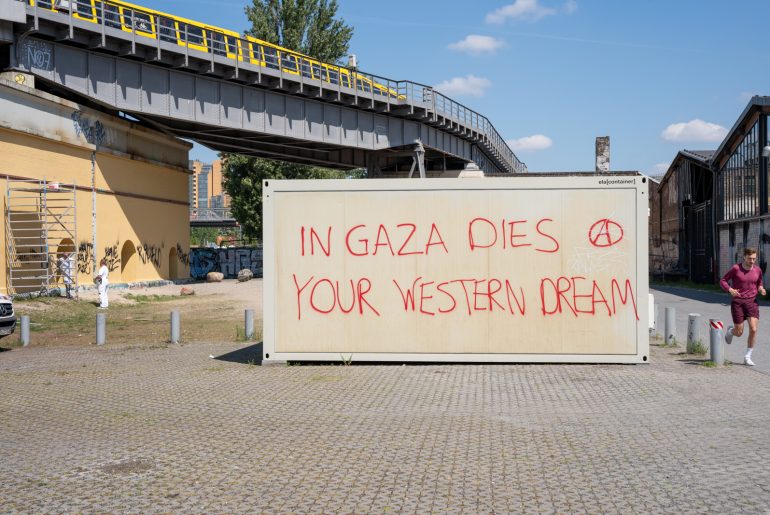 ela[container]
IN GAZA DIES Ⓐ
YOUR WESTERN DREAM